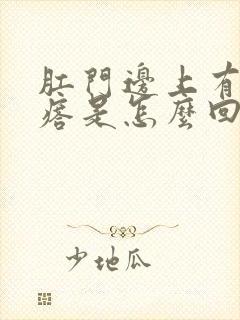 肛門邊上有
痞是怎麼回
少地瓜